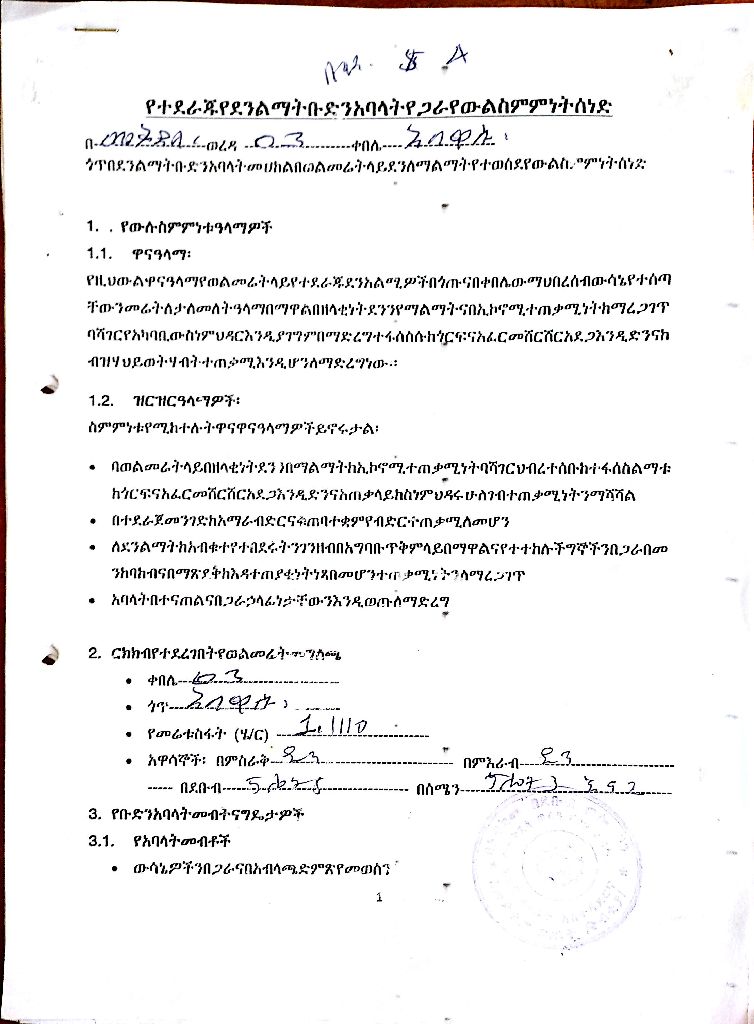 የተደራጁየደንልማትቡድንአባላትየጋራየውልስምምነትሰነድ
በ- ወረዳ 03 ቀበሌ
ጎጥበደንልማትቡድንአባላትመሀከልበወልመሬትላይደንለማልማትየተወሰደየውልስምምነትሰነድ
1. . የውሉስምምነቱዓላማዎች
1.1. ዋናዓላማ፡
የዚህውልዋናዓላማየወልመሬትላይየተደራጁደንአልሚዎችበጎጡናበቀበሌውማህበረሰብውሳኔየተሰጣ
ቸውንመሬትለታለመለትዓላማበማዋልበዘላቂነትደንንየማልማትናበኢኮኖሚተጠቃሚነትከማረጋገጥ
ባሻገርየአካባቢውስነምህዳርእንዲያገግምበማድረግተፋሰሱከጎርፍናአፈርመሸርሸርአደጋእንዲድንናከ
ብዝሃህይወትሃብትተጠቃሚእንዲሆንለማድረግነው፡፡
1.2. ዝርዝርዓላማዎች፡
ስምምነቱየሚከተሉትዋናዋናዓላማዎችይኖሩታል፡
• በወልመሬትላይበዘላቂነትደንንበማልማትከኢኮኖሚተጠቃሚነትባሻገርህብረተሰቡከተፋሰስልማቱ
ከጎርፍናአፈርመሸርሸርአደጋእንዲድንናአጠቃላይከስነምህዳሩሁለገብተጠቃሚነትንማሻሻል
• በተደራጀመንገድከአማራብድርናቁጠባተቋምየብድርተጠቃሚለመሆን
• ለደንልማትከአብቁተየተበደሩትንገንዘብበአግባቡጥቅምላይበማዋልናየተተከሉችግኞችንበጋራበመ
ንከባከብናበማጽደቅከእዳተጠያቂነትነጻበመሆንተጠቃሚነትንማረጋገጥ
• አባላትበተናጠልናበጋራኃላፊነታቸውንእንዲወጡለማድረግ
2. ርክክብየተደረገበትየወልመሬትመግለጫ
• ቀበሌ 03
• ጎጥ
• የመሬቱስፋት (ሄ/ር) 1.1110
• አዋሳኞች፡ በምስራቅ በምእራብ
በደቡብ በሰሜን
3. የቡድንአባላትመብትናግዴታዎች
3.1. የአባላትመብቶች
• ውሳኔዎችንበጋራናበአብላጫድምጽየመወሰን
1